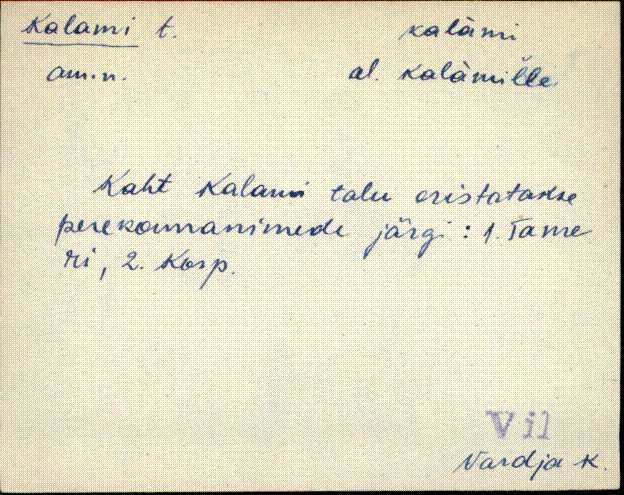 Kalami t. kalàmi
am.n. al. kalàmille
Kaht Kalami talu eristatakse
perekonnanimede järgi : 1. Tamme
ri, 2. Kosp.
Vil
Vardja k.